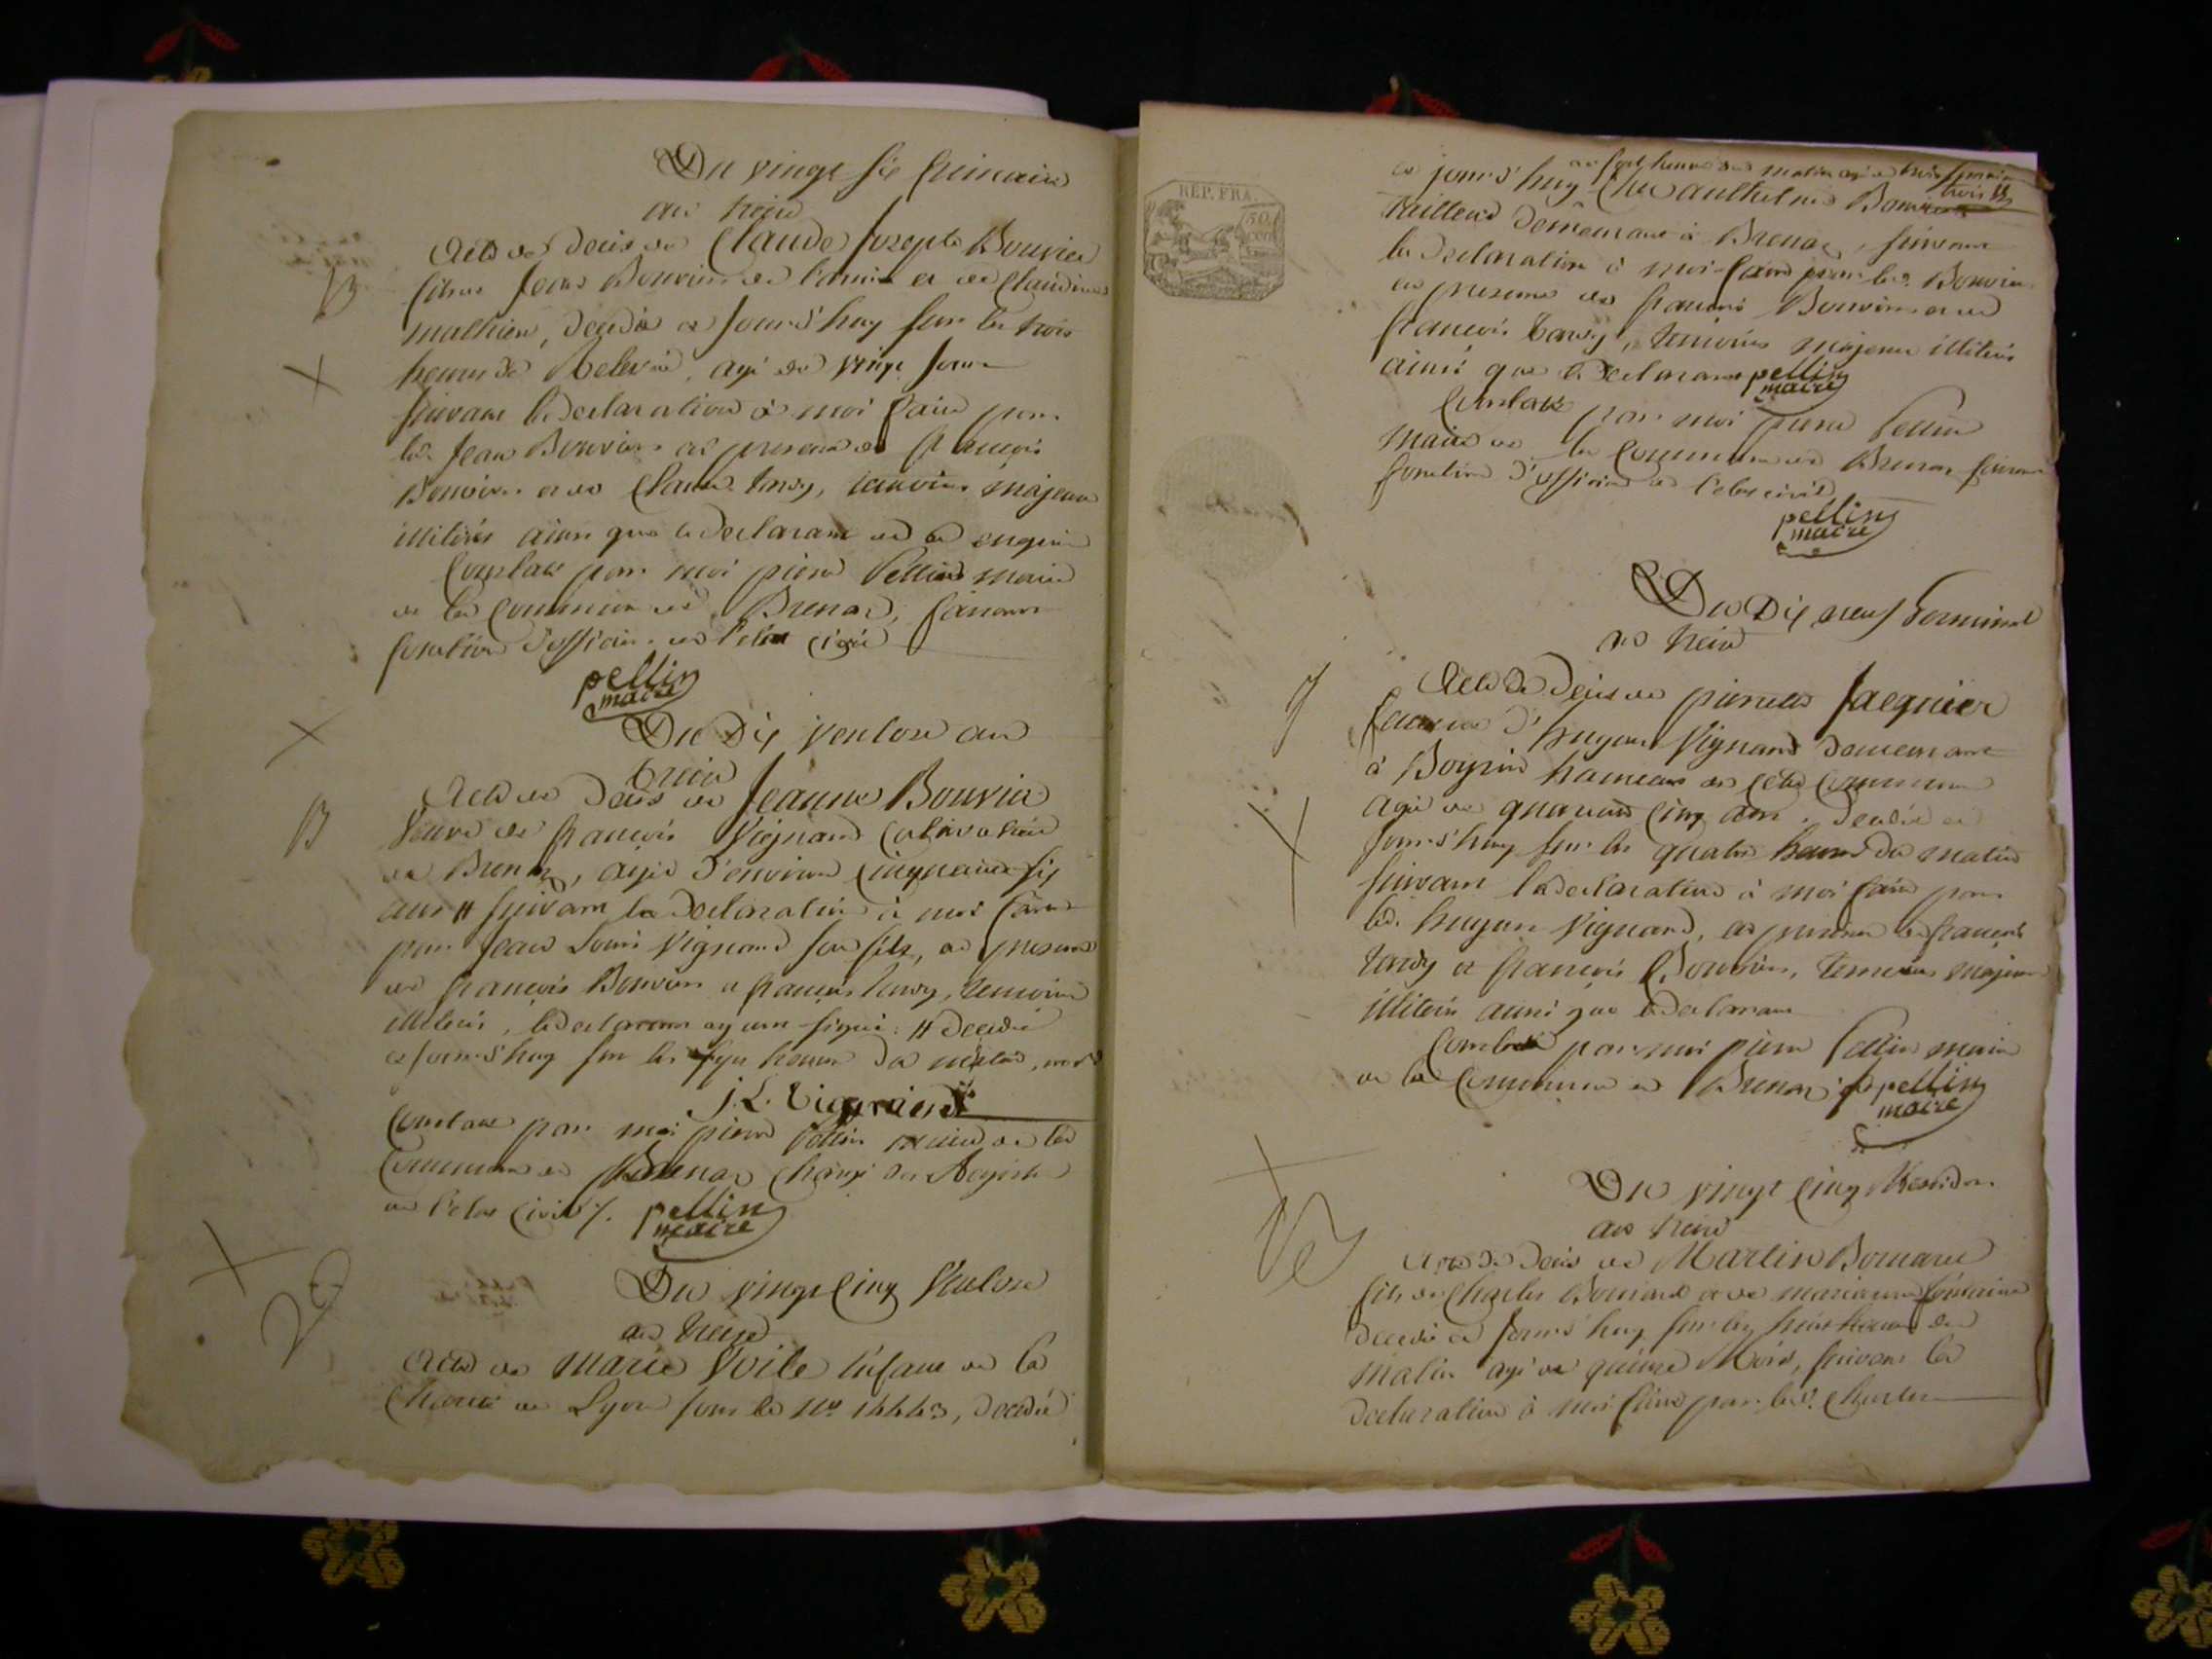 Du vingt six frimaire
an treize
Acte de décès de Claude Joseph Bouvier
B
fils de Jean Bouvier de l'ainé et de Claudine
mathieu, décédé ce jourd'huy sur les trois
X
heures de Relevée, agé de vingt jours
suivant la declaration à moi faite par
led. Jean Bouvier en presence de françois
Bouvier et de Claude tardy, temoins majeurs
illiterés ainsi que le declarant
Constaté par moi pierre Pellin maire
de la Commune de Brenaz, faisant
fonction d'officier de l'état civil
pellin
maire
X
Du Dix Ventose an
treize
Acte de Décès de Jeanne Bouvier
B
Veuve de françois Vignand Cultivatrice
de Brenaz, agée d'environ cinquante six
ans # suivant la declaration à moi faite
par Jean Louis Vignand son fils, en presence
de françois Bouvier et françois tardy, temoins
illiterés, le declarant ayant signé. # decedée
ce jourd'huy sur les heures du matin,
J. L. Vignand
Constaté par moi pierre Pellin maire de la
Commune de Brenaz Chargé des Registres
de l'état Civil /. pellin
maire
X
Du vingt Cinq Ventose
an treize
Acte de marie Voile Enfant de la
Charité de Lyon sous le No. 14443, decedée
REP. FRA.
ce jourd'huy Chez anthelme Bouvier
tailleur demeurant à Brenaz, suivant
la declaration à moi faite par led. Bouvier
en presence de françois Bouvier et de
françois tardy, temoins majeurs illiterés
ainsi que le declarant pellin
maire
Constaté par moi pierre Pellin
maire de la Commune de Brenaz faisant
fonction d'officier de l'état civil
pellin
maire
Du Dix neuf Germinal
an treize
J
Acte de Décès de pierrette Jacquier
femme d'hugues Vignand demeurant
à Boyrin hameau de cette Commune
agée de quarante cinq ans. decedée ce
X
jourd'huy sur les quatre heures du matin
suivant la declaration à moi faite par
led. hugues Vignand, en presence de françois
tardy et françois Bouvier, temoins majeurs
illiterés ainsi que le declarant
Constaté par moi pierre Pellin maire
de la Commune de Brenaz pellin
maire
X
Du vingt Cinq Messidor
an treize
Acte de Décès de Martin Bornand
fils de Charles Bornand et de marianne fontaine
decedé ce jourd'huy sur les heures du
matin agé de quinze Mois, suivant la
declaration à moi faite par led. Charles